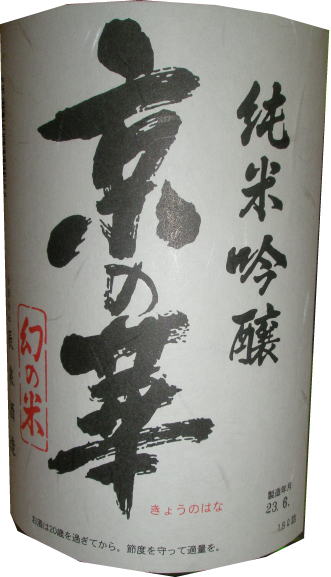 純米吟醸
京の華
きょうのはな
幻の米
製造年月
23.6.
1.8ℓ詰
お酒は20歳を過ぎてから。節度を守って適量を。